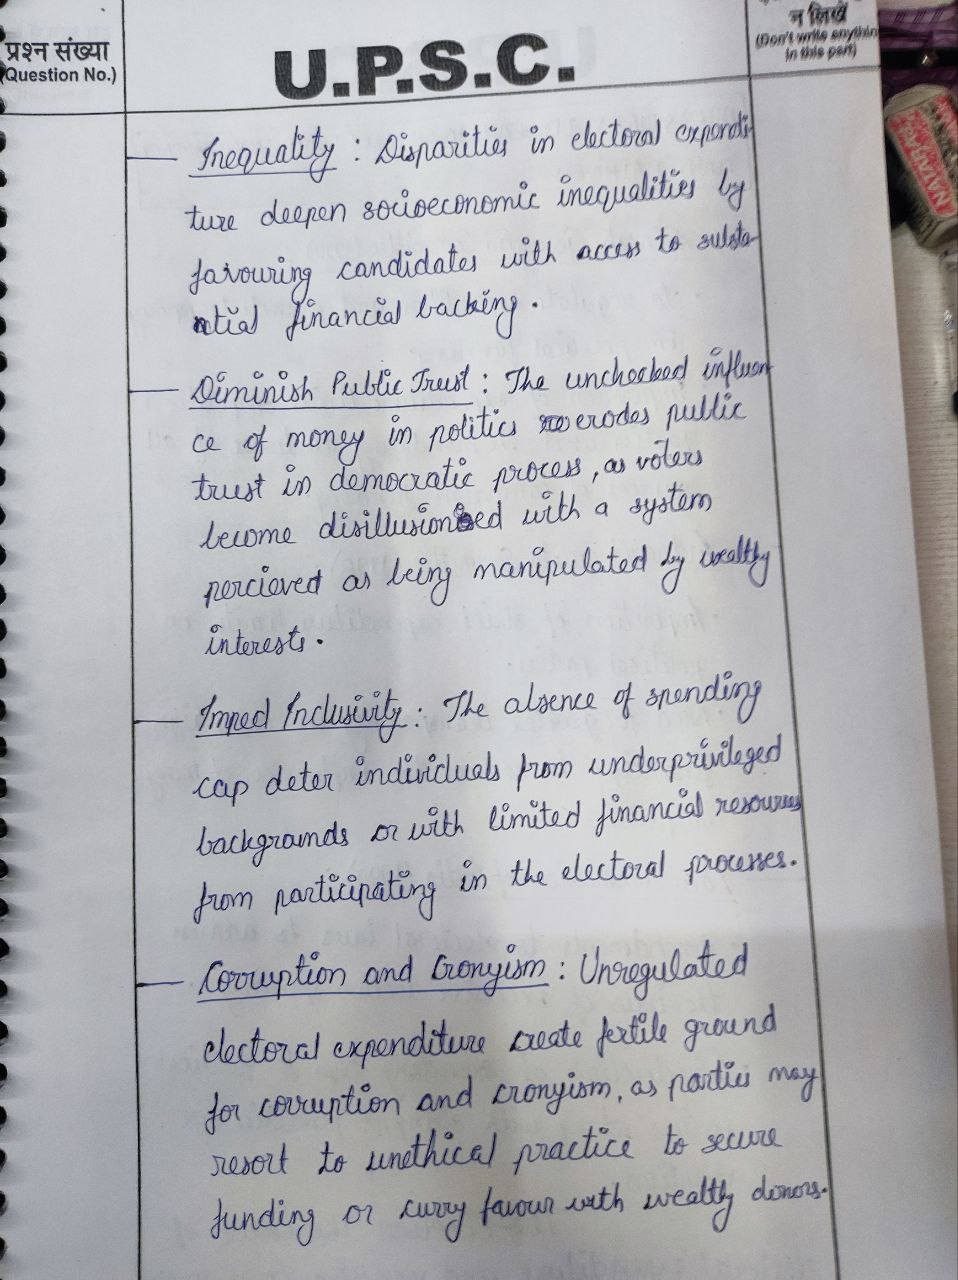 प्रश्न संख्या
(Question No.)
U.P.S.C.
न लिखें
(Don't write anythin
in this part)
Inequality : Disparities in electoral expendi
ture deepen socioeconomic inequalities by
favouring candidates with access to substa-
ntial financial backing.
Diminish Public Trust : The unchecked influen
ce of money in politics erodes public
trust in democratic process, as voters
become disillusioned with a system
percieved as being manipulated by wealthy
interests.
Imped Inclusivity : The absence of spending
cap deter individuals from underprivileged
backgrounds or with limited financial resources
from participating in the electoral processes.
Corruption and Cronyism : Unregulated
electoral expenditure create fertile ground
for corruption and cronyism, as parties may
resort to unethical practice to secure
funding or curry favour with wealthy donors.
NATARAJ